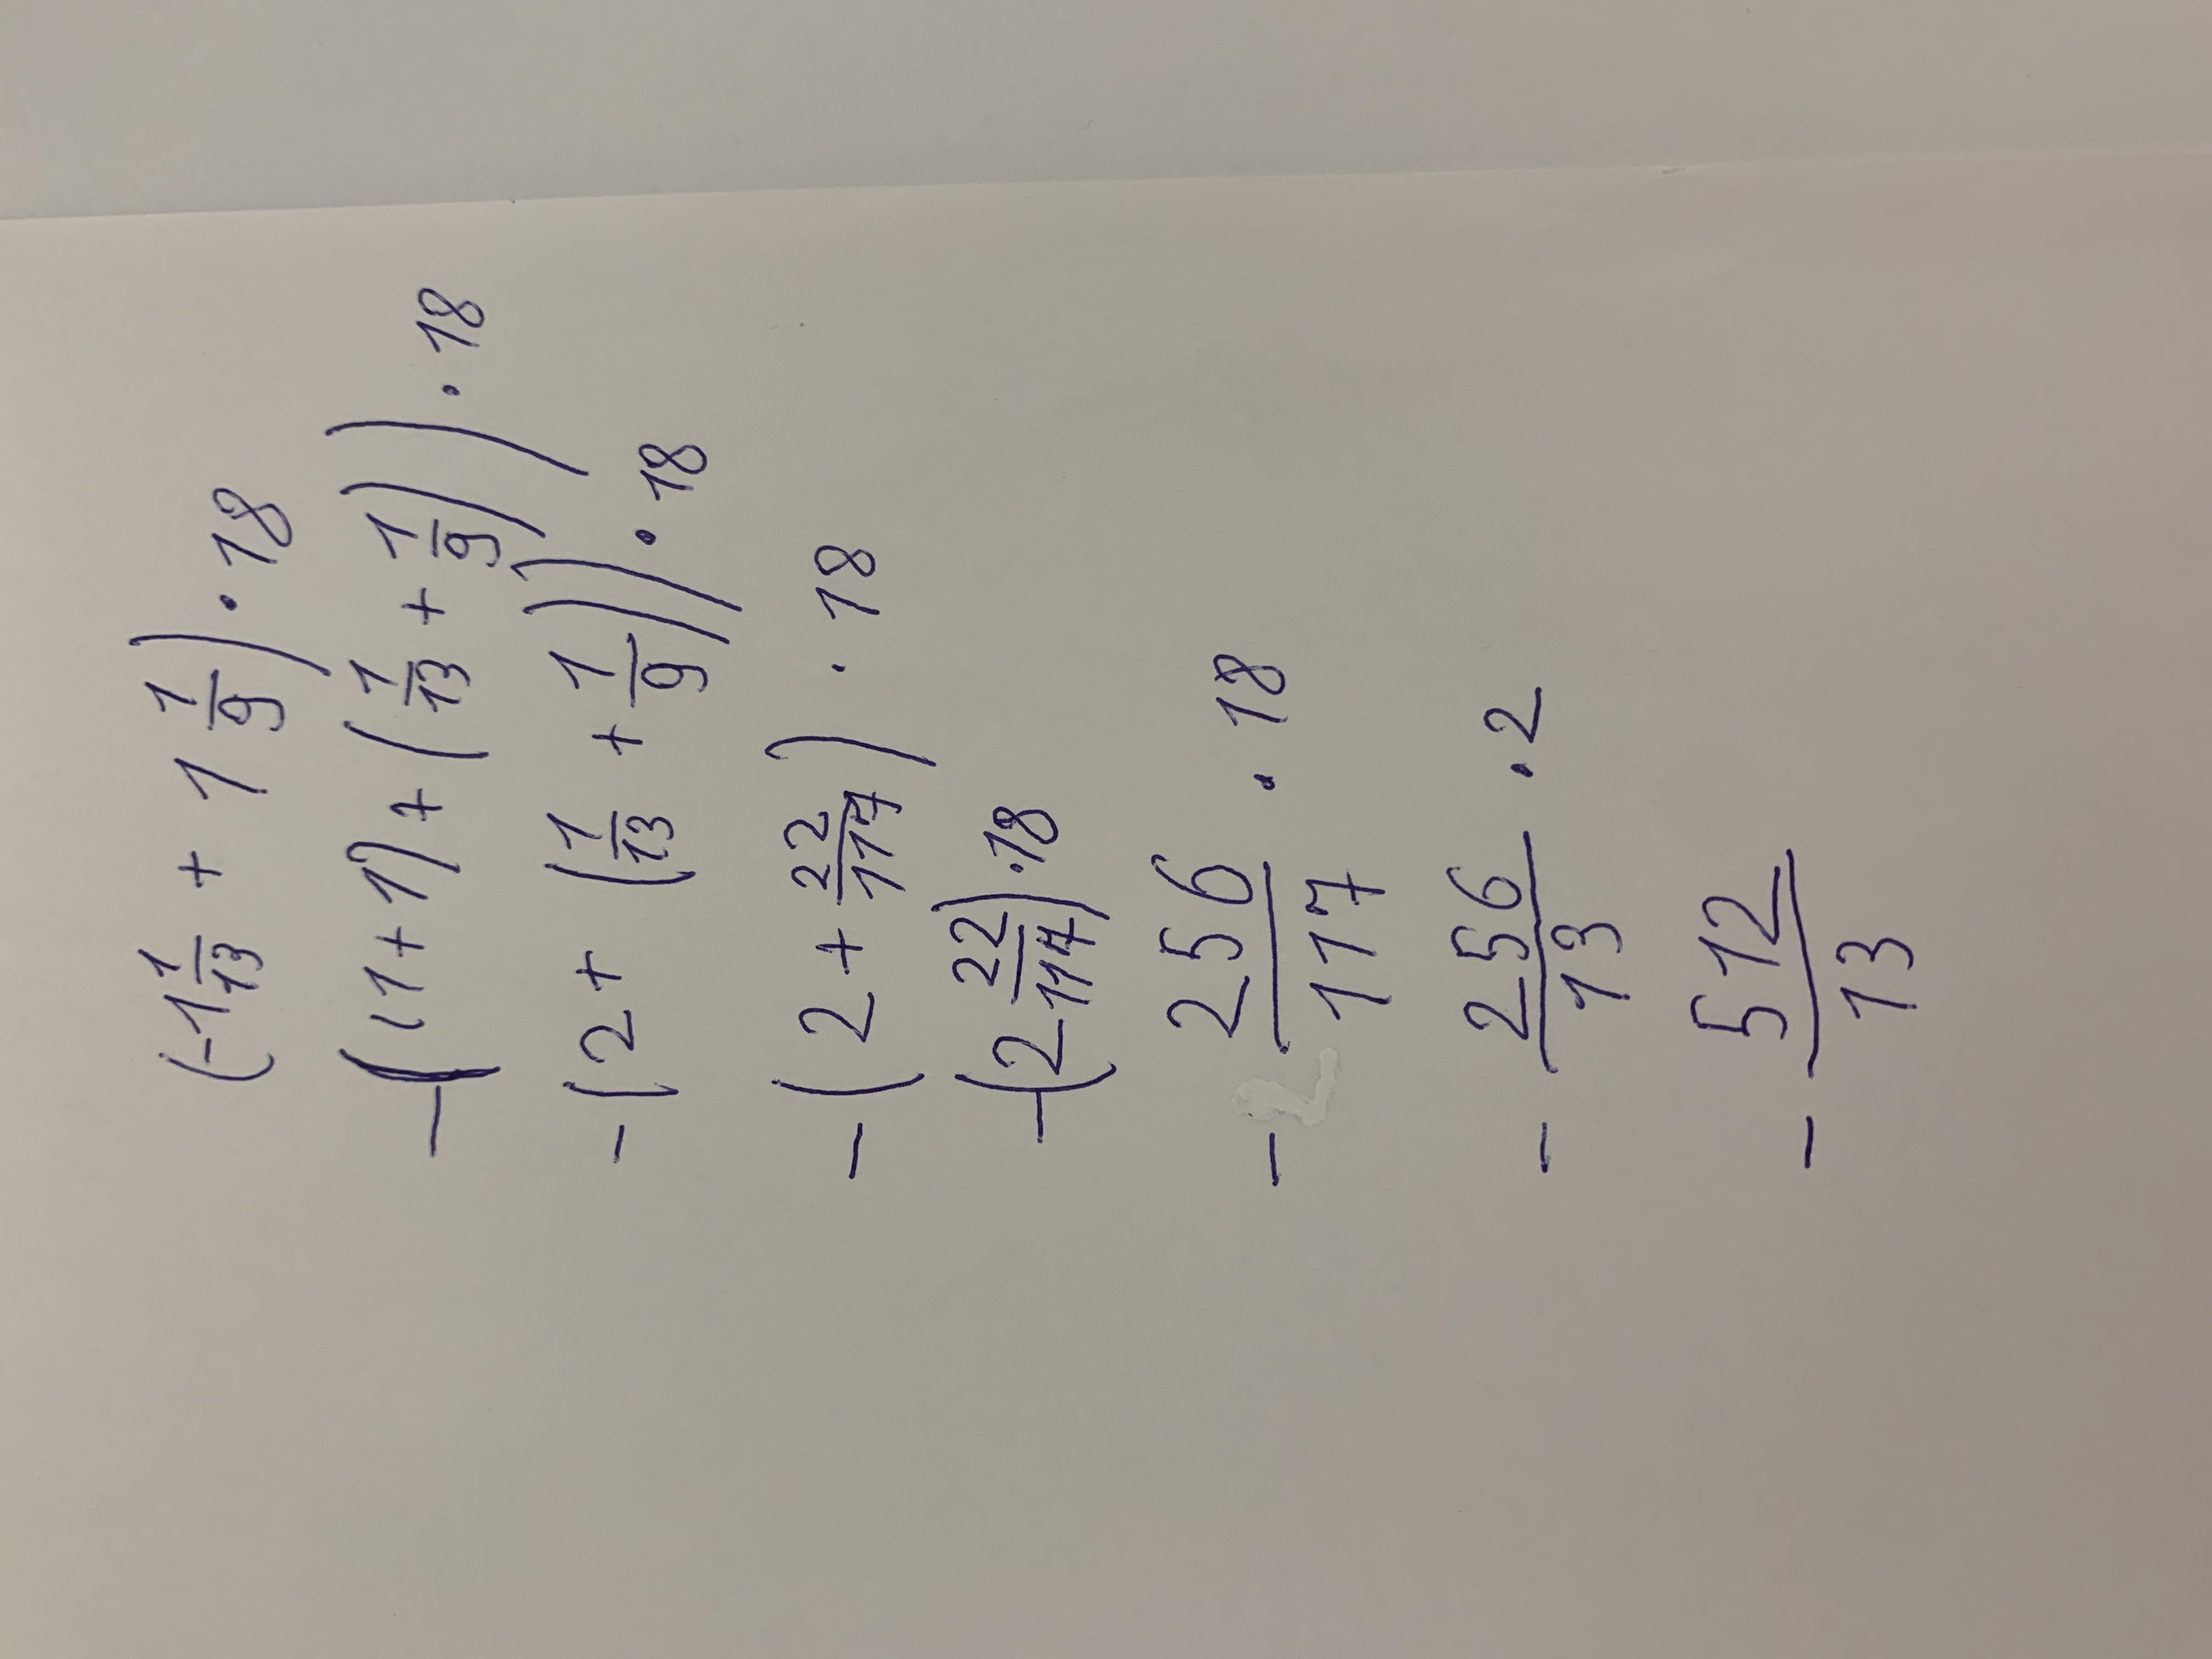 (-1 1/13 + 1 1/9) · 18
-((1+1)+(1/13 + 1/9)) · 18
-(2+ (1/13 + 1/9)) · 18
-(2+ 22/117) · 18
-(2 22/117) · 18
- 256/117 · 18
- 256/13 · 2
- 512/13